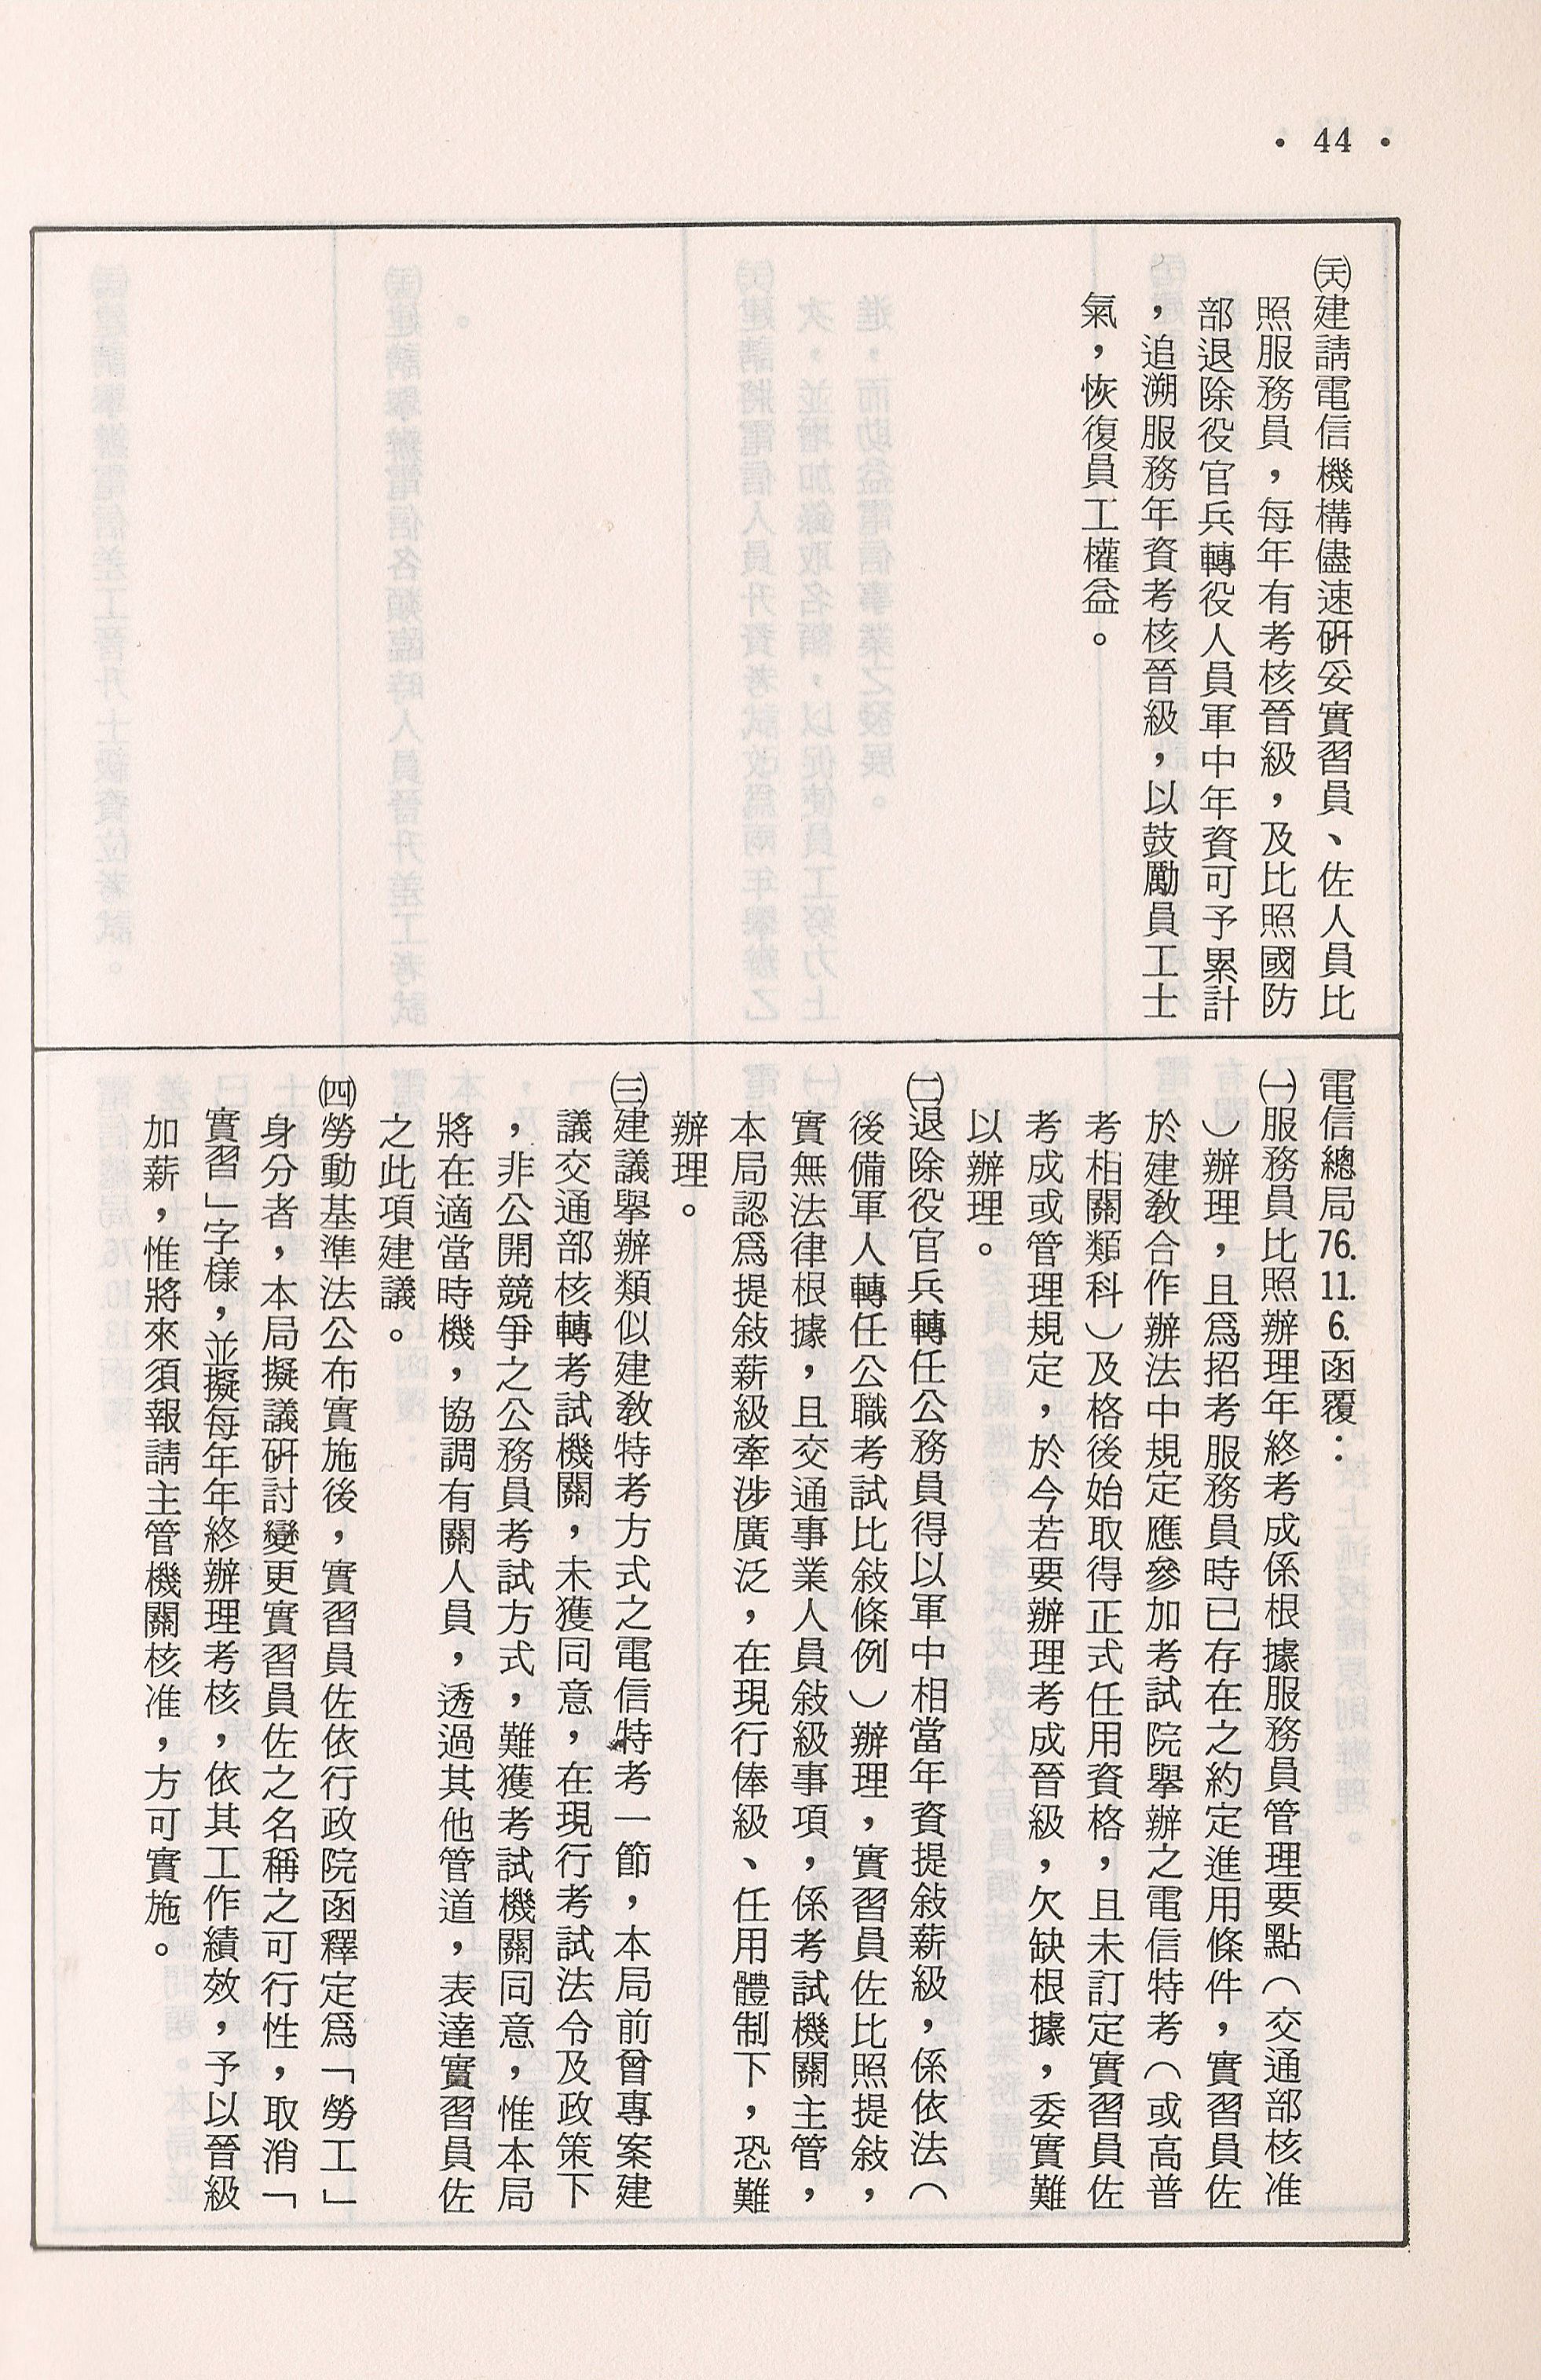 • 44 •
㈥建請電信機構儘速研妥實習員、佐人員比
照服務員，每年有考核晉級，及比照國防
部退除役官兵轉役人員軍中年資可予累計
，追溯服務年資考核晉級，以鼓勵員工士
氣，恢復員工權益。
電信總局76.11.6.函覆：
㈠服務員比照辦理年終考成係根據服務員管理要點（交通部核准
）辦理，且爲招考服務員時已存在之約定進用條件，實習員佐
於建教合作辦法中規定應參加考試院舉辦之電信特考（或高普
考相關類科）及格後始取得正式任用資格，且未訂定實習員佐
考成或管理規定，於今若要辦理考成晉級，欠缺根據，委實難
以辦理。
㈡退除役官兵轉任公務員得以軍中相當年資提敍薪級，係依法（
後備軍人轉任公職考試比敍條例）辦理，實習員佐比照提敍，
實無法律根據，且交通事業人員敍級事項，係考試機關主管，
本局認爲提敍薪級牽涉廣泛，在現行俸級、任用體制下，恐難
辦理。
㈢建議舉辦類似建教特考方式之電信特考一節，本局前曾專案建
議交通部核轉考試機關，未獲同意，在現行考試法令及政策下
，非公開競爭之公務員考試方式，難獲考試機關同意，惟本局
將在適當時機，協調有關人員，透過其他管道，表達實習員佐
之此項建議。
㈣勞動基準法公布實施後，實習員佐依行政院函釋定爲「勞工」
身分者，本局擬議研討變更實習員佐之名稱之可行性，取消「
實習」字樣，並擬每年年終辦理考核，依其工作績效，予以晉級
加薪，惟將來須報請主管機關核准，方可實施。